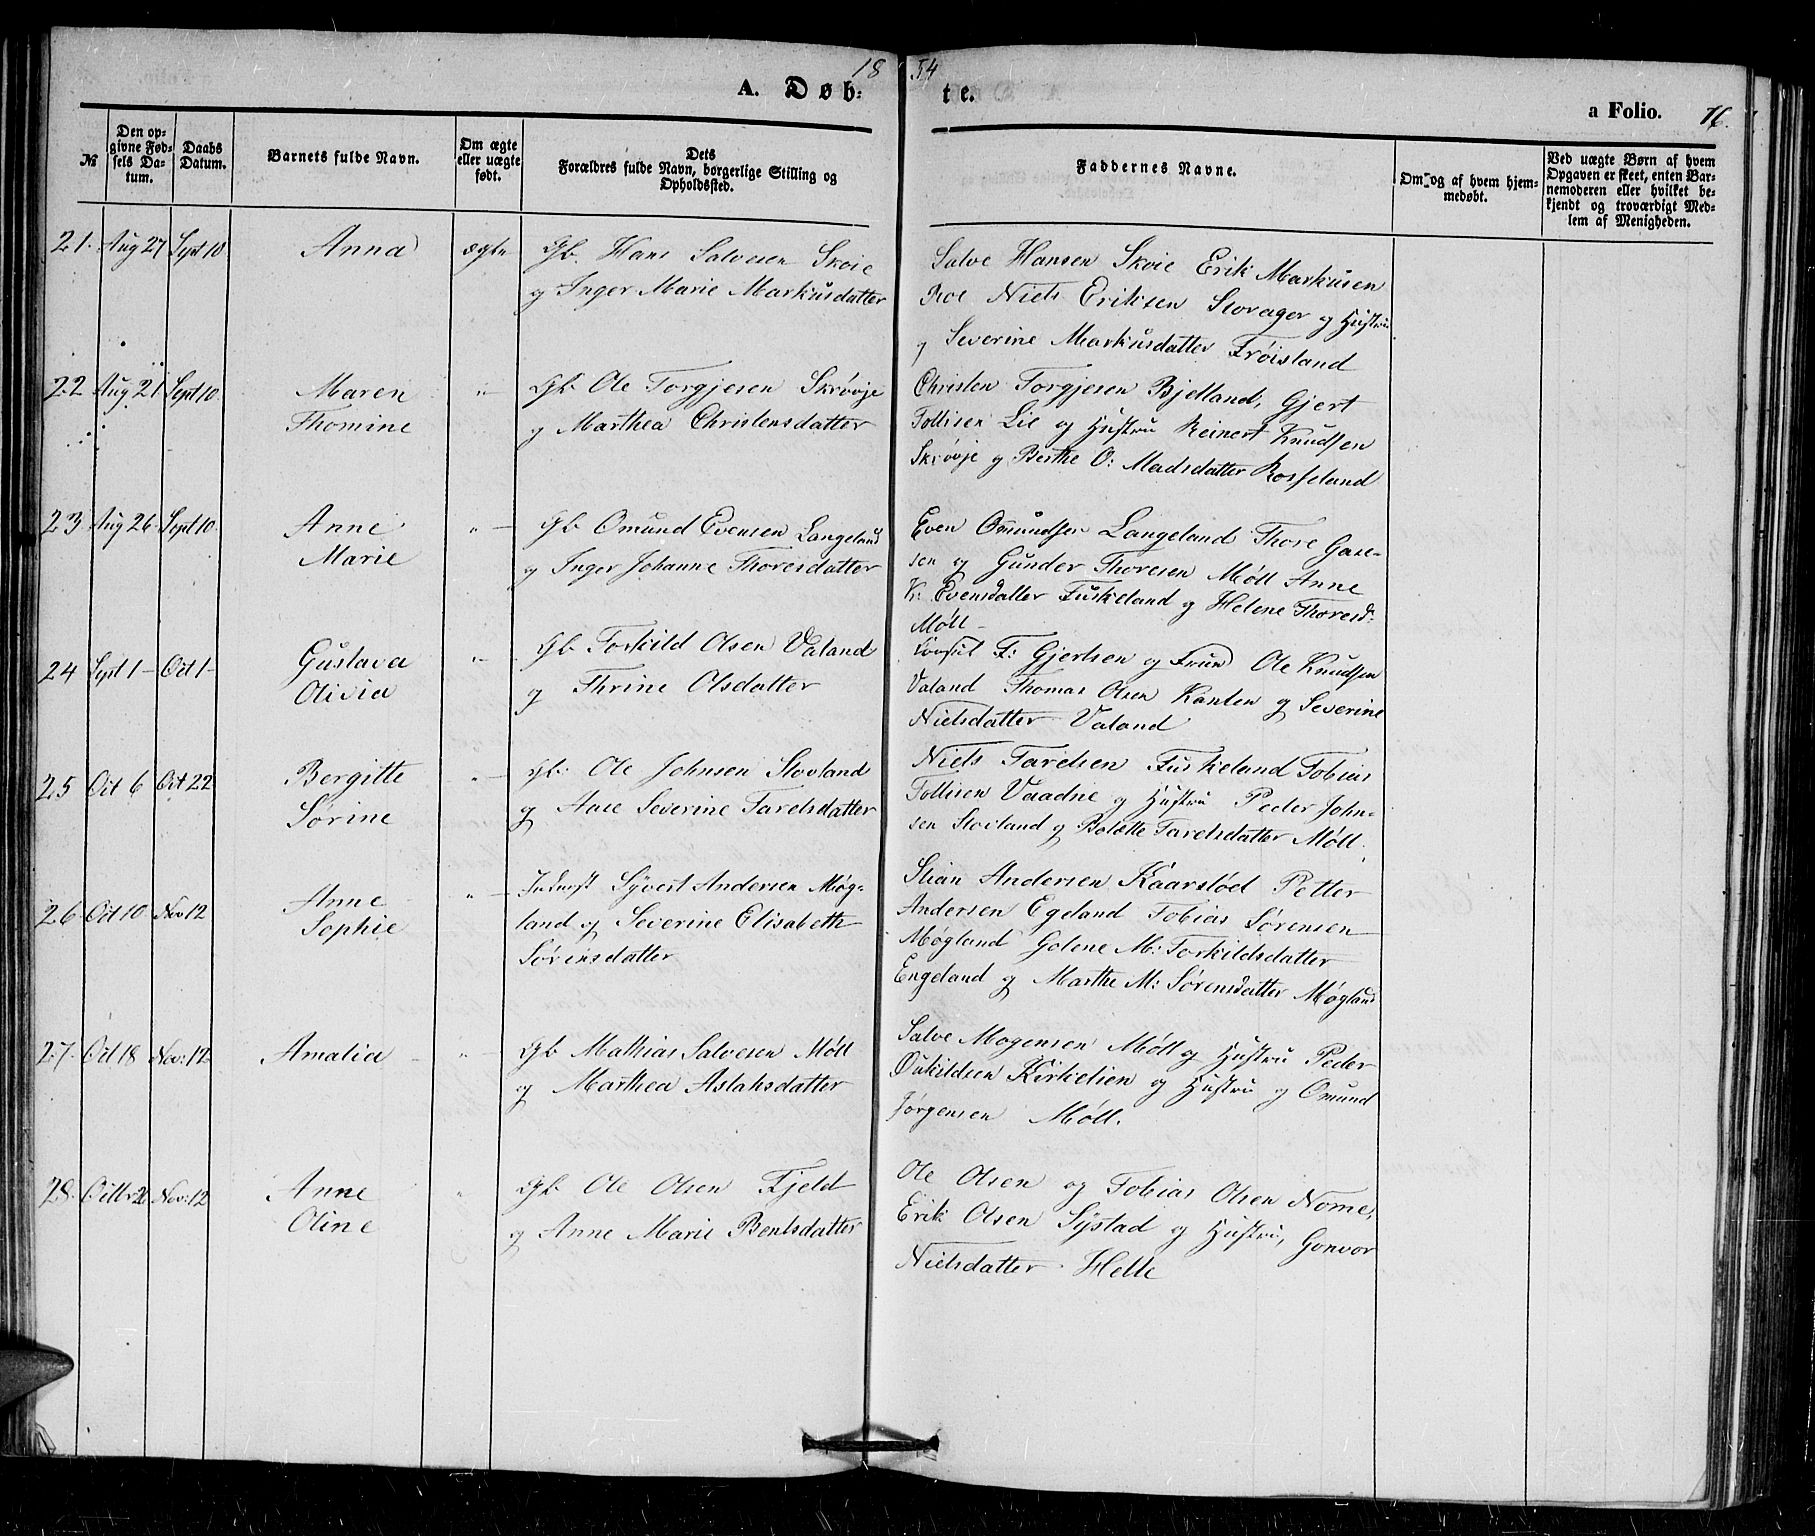 1854
A. Døb-te.
a Folio. 76.
№
Den opgivne Fødsels Datum.
Daabs Datum.
Barnets fulde Navn.
Om ægte eller uægte født.
Dets Forældres fulde Navn, borgerlige Stilling og Opholdssted.
Faddernes Navne.
Om og af hvem hjemmedøbt.
Ved uægte Børn af hvem Opgaven er skeet, enten Barnemoderen eller hvilket bekjendt og troværdigt Medlem af Menigheden.
21. Aug 27 Sept 10 Anna ægte Gb. Hans Salvesen Skoie
og Inger Marie Markusdatter
Salve Hansen Skoie Erik Markusen
Roe Niels Eriksen Storager og Hustru
og Severine Markusdatter Frøisland
22 Aug 21 Sept 10 Maren
Thomine
"— Gb. Ole Torgjesen Skrøvje
og Marthea Christensdatter
Christen Torgjesen Bjelland, Gjert
Tollisen Lie og Hustru Reinert Knudsen
Skrøvje og Berthe O: Madsdatter Rosseland
23 Aug 26 Sept 10 Anne
Marie
"— Gb Omund Evensen Langeland
og Inger Johanne Thoresdatter
Even Omundsen Langeland Thore Gase-
sen og Gunder Thoresen Møll Anne
K: Evensdatter Fuskeland og Helene Thoresd:
Møll
24 Sept 1 Oct 1 Gustava
Olivia
"— Gb. Torkild Olsen Valand
og Thrine Olsdatter
Consul F: Gjertsen og Frue Ole Knudsen
Valand Thomas Olsen Kanten og Severine
Nielsdatter Valand
25 Oct 6 Oct 22 Bergitte
Sørine
"— Gb: Ole Johnsen Stovland
og Aase Severine Tarelsdatter
Niels Tarelsen Fuskeland Tobias
Tollisen Vaadne og Hustru Peder John-
sen Stoiland og Bolette Tarelsdatter Møll.
26 Oct 10 Nov 12 Anne
Sophie
"— Inderst Syvert Andersen Møg-
land og Severine Elisabeth
Sørensdatter
Stian Andersen Kaarstød Petter
Andersen Egeland Tobias Sørensen
Møgland Golene M: Torkildsdatter
Engeland og Marthe M: Sørensdatter Møgland
27. Oct 18 Nov: 12 Amalia "— Gb Mathias Salvesen Møll
og Marthea Aslaksdatter
Salve Mogensen Møll og Hustru Peder
Oukildsen Kirkelien og Hustru og Omund
Jørgensen Møll.
28. Octbr 26 Nov: 12 Anne
Oline
" Gb. Ole Olsen Fjeld
og Anne Marie Bentsdatter
Ole Olsen og Tobias Olsen Nome,
Erik Olsen Systad og Hustru, Gonvor
Nielsdatter Helle